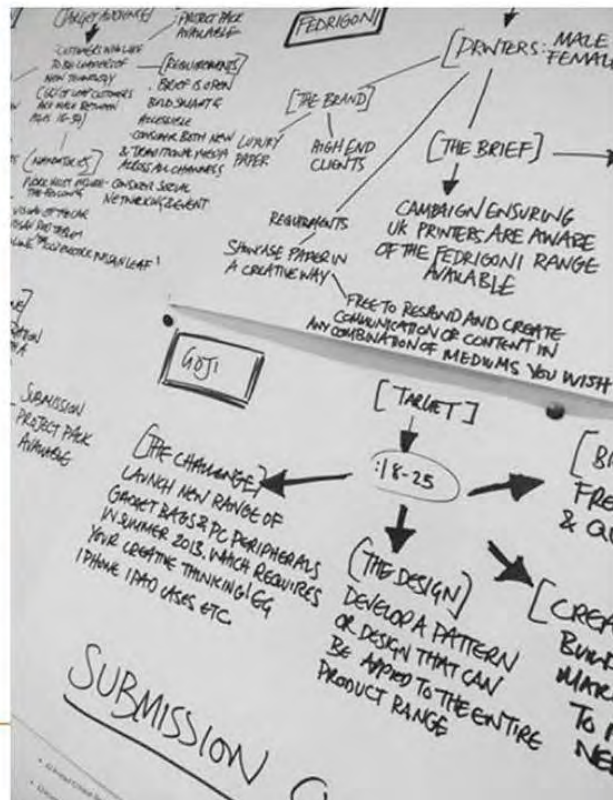 [TARGET AUDIENCE]
PROJECT PACK
AVAILABLE
CUSTOMERS WHO LIKE
TO BE LEADERS OF
NEW TECHNOLOGY
AGES 16-34)
[REQUIREMENTS]
BRIEF IS OPEN
BOLD SMART &
ACCESSIBLE
CONSIDER BOTH NEW
& TRADITIONAL MEDIA
ACROSS ALL CHANNELS
CONSIDER SOCIAL
NETWORKING & EVENT
THE FOLLOWING
FEDRIGONI
[THE BRAND]
LUXURY
PAPER
HIGH END
CLIENTS
[PRINTERS: MALE
FEMALE
[THE BRIEF]
CAMPAIGN ENSURING
UK PRINTERS ARE AWARE
OF THE FEDRIGONI RANGE
AVAILABLE
REQUIRMENTS
SHOWCASE PAPER IN
A CREATIVE WAY
FREE TO RESPOND AND CREATE
COMMUNICATION OR CONTENT IN
ANY COMBINATION OF MEDIUMS YOU WISH
SUBMISSION
PROJECT PACK
AVAILABLE
GOJI
[TARGET]
:18-25
[THE CHALLENGE]
LAUNCH NEW RANGE OF
GADGET BAGS & PC PERIPHERALS
IN SUMMER 2013. WHICH REQUIRES
YOUR CREATIVE THINKING! EG
IPHONE IPAD CASES ETC.
[THE DESIGN]
DEVELOP A PATTERN
OR DESIGN THAT CAN
BE APPLIED TO THE ENTIRE
PRODUCT RANGE
FRE
& QU
[CREA
BUIL
MAR
TO
NE
SUBMISSION